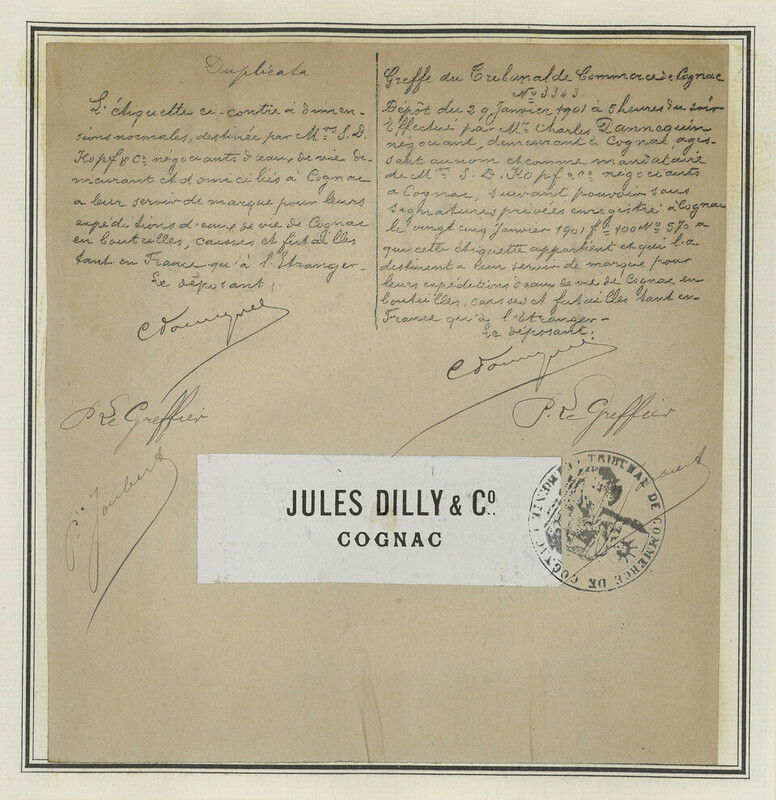 Duplicata
L'étiquette ci-contre à dimen-
sions normales, destinée par Mrs S. D.
Kopf & Co négociants d'eaux de vie de-
meurant et domiciliés à Cognac
a leur servir de marque pour leurs
expéditions d'eaux de vie de Cognac
en bouteilles, caisses et futailles
tant en France qu'à l'Etranger-
Le déposant;
P. Le Greffier
P. Joubert
Greffe du Tribunal de Commerce de Cognac
No 3343.
Dépôt du 29 Janvier 1901 à 5 heures du soir
Effectué par Mr Charles Dannequin
négociant, demeurant à Cognac, agis-
sant au nom et comme mandataire
de Mrs S. D. Kopf & Co négociants
a Cognac, suivant pouvoir sous
signatures privées enregistré à Cognac
le vingt cinq Janvier 1901 fo 100 No 570 a
qui cette étiquette appartient et qui la
destinent a leur servir de marque pour
leurs expéditions d'eaux de vie de Cognac en
bouteilles, caisses et futailles tant en-
France qu'à l'Etranger-
Le déposant;
P. Le Greffier
JULES DILLY & Co.
COGNAC
TRIBUNAL DE COMMERCE DE COGNAC